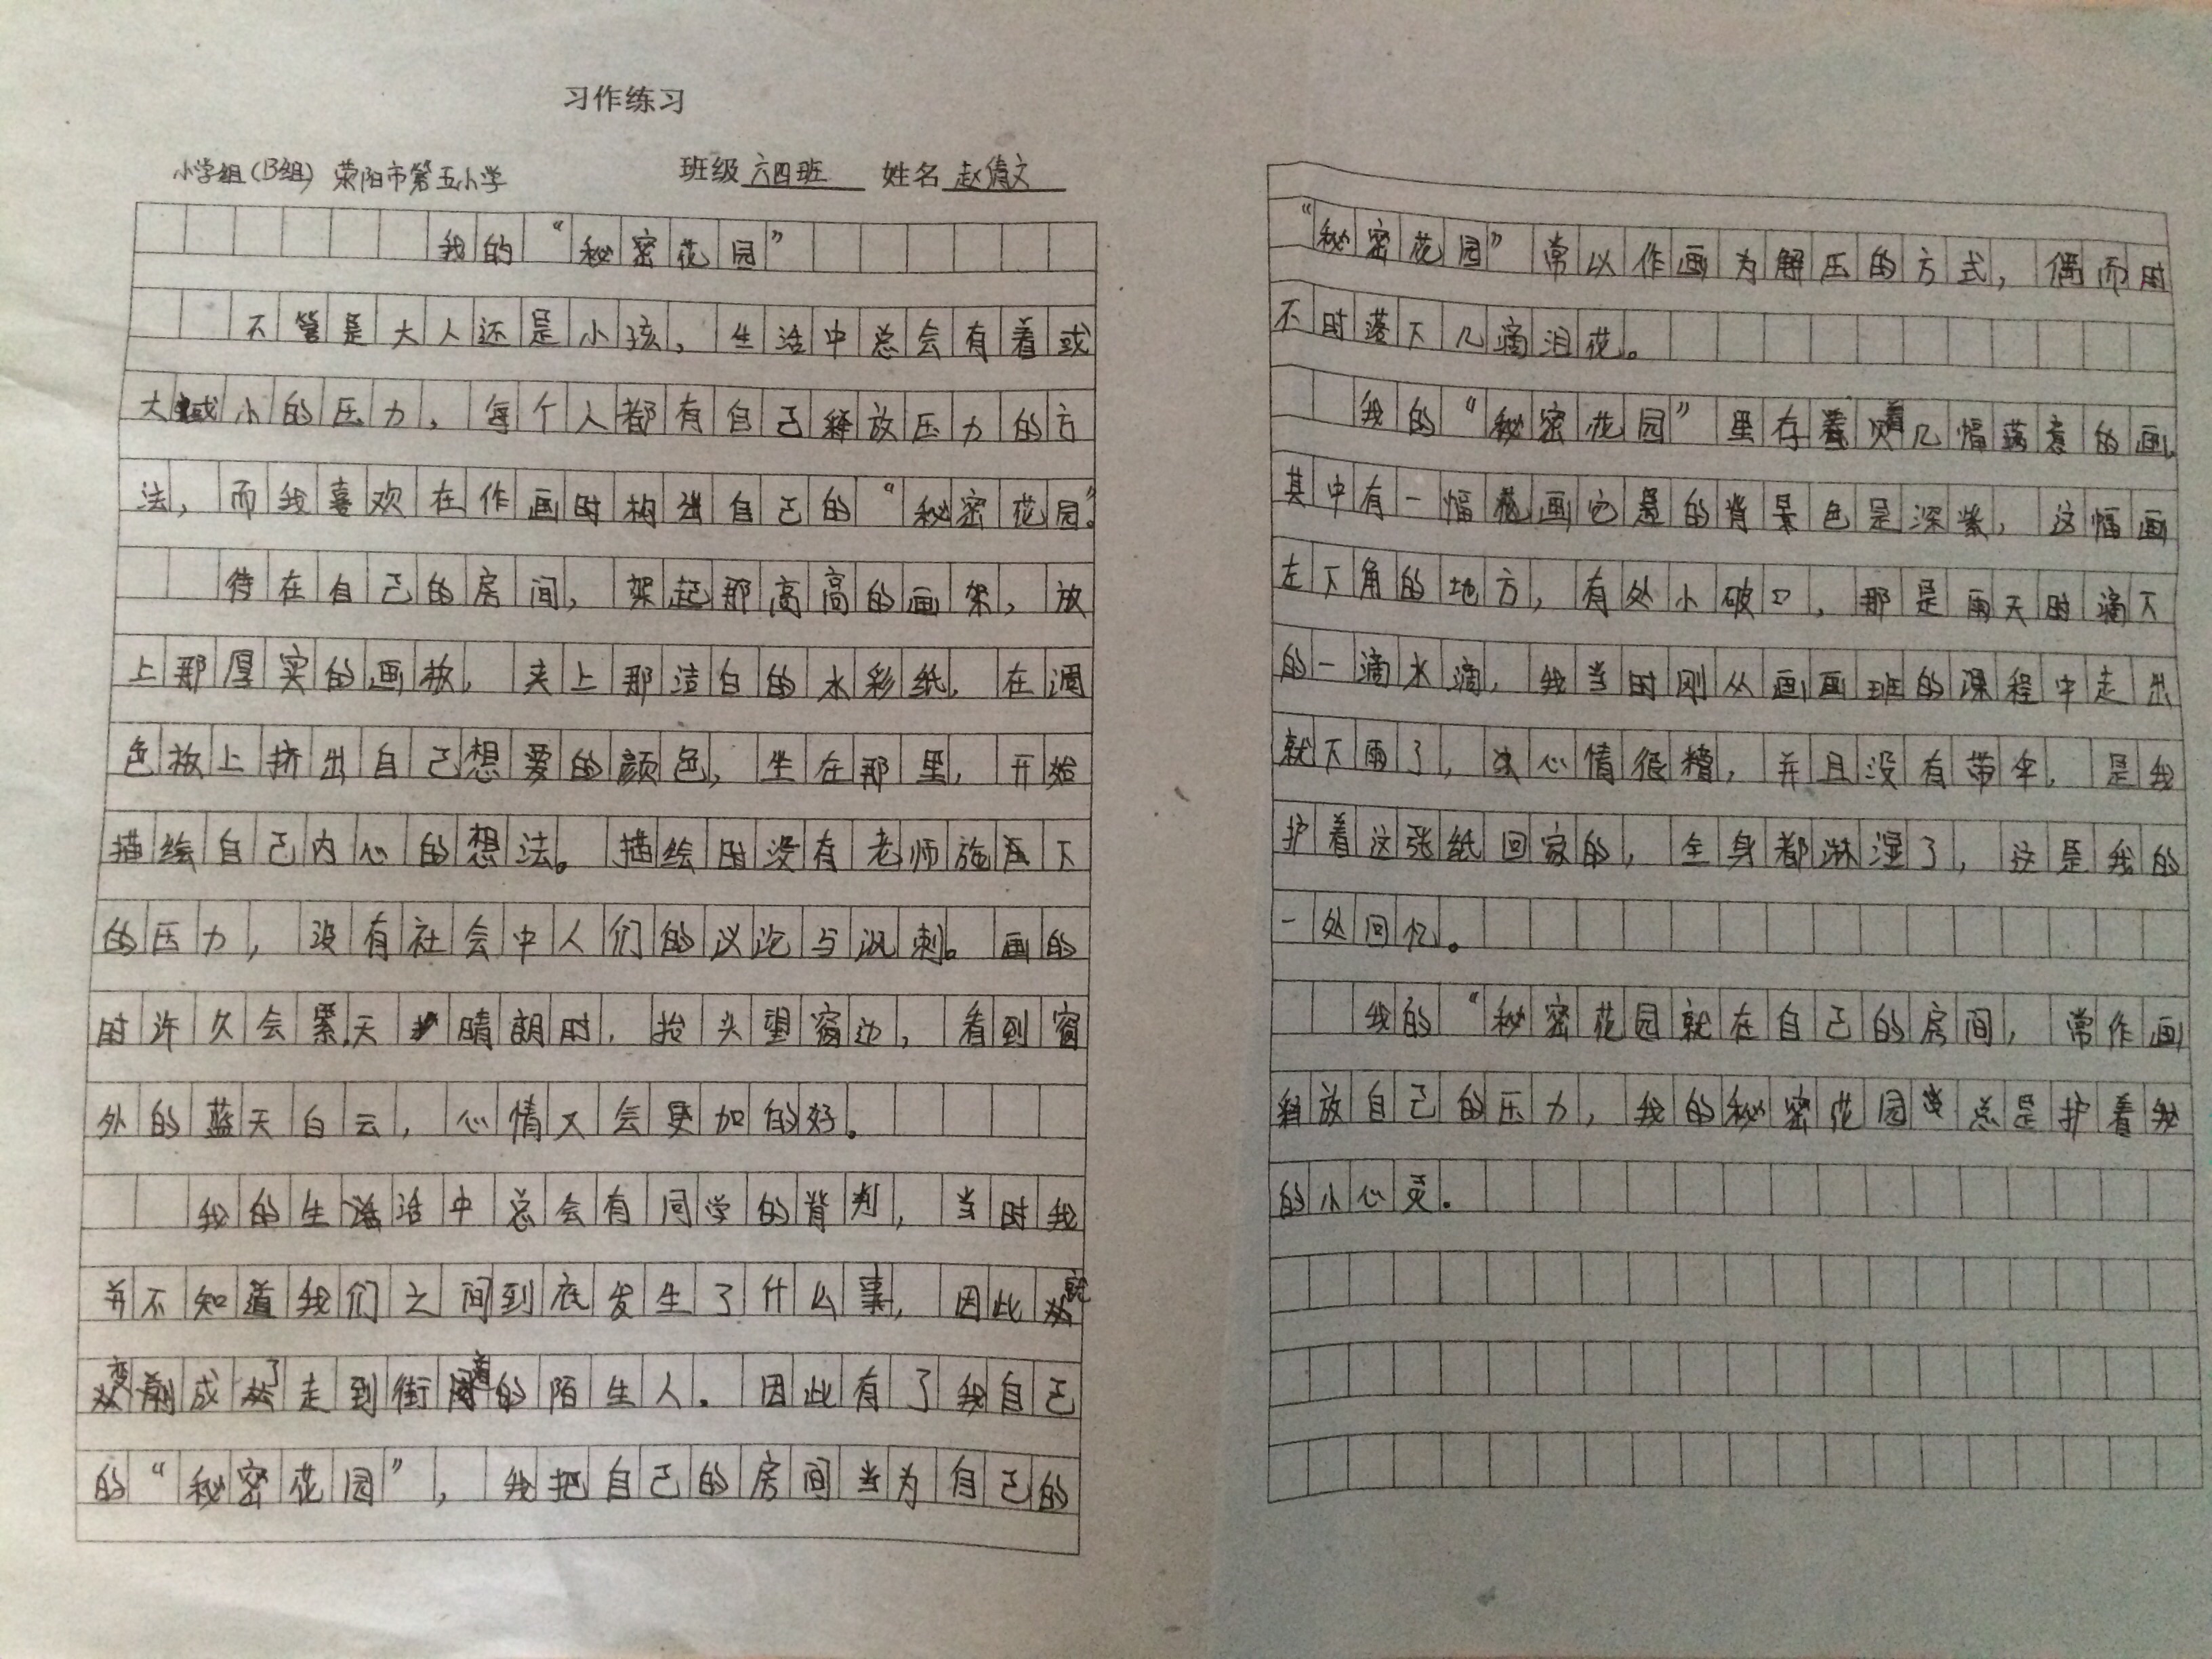 习作练习
小学组(B组) 荥阳市第五小学 班级 六四班 姓名 赵倩文
我的“秘密花园”
不管是大人还是小孩,生活中总会有着或
大或小的压力,每个人都有自己释放压力的方
法,而我喜欢在作画时构造自己的“秘密花园”。
待在自己的房间,架起那高高的画架,放
上那厚实的画板,夹上那洁白的水彩纸,在调
色板上挤出自己想要的颜色,坐在那里,开始
描绘自己内心的想法。描绘时没有老师施压下
的压力,没有社会中人们的议论与讽刺。画的
时许久会累,天晴朗时,抬头望窗边,看到窗
外的蓝天白云,心情又会更加的好。
我的生活中总会有同学的背判,当时我
并不知道我们之间到底发生了什么事,因此就
变成了走到街道的陌生人。因此有了我自己
的“秘密花园”,我把自己的房间当为自己的
“秘密花园”常以作画为解压的方式,偶而时
不时落下几滴泪花。
我的“秘密花园”里存着几幅满意的画,
其中有一幅画它的背景色是深紫,这幅画
左下角的地方,有处小破口,那是雨天时滴下
的一滴水滴,我当时刚从画画班的课程中走出
就下雨了,心情很糟,并且没有带伞,是我
护着这张纸回家的,全身都淋湿了,这是我的
一处回忆。
我的“秘密花园就在自己的房间,常作画
释放自己的压力,我的秘密花园总是护着我
的小心灵。